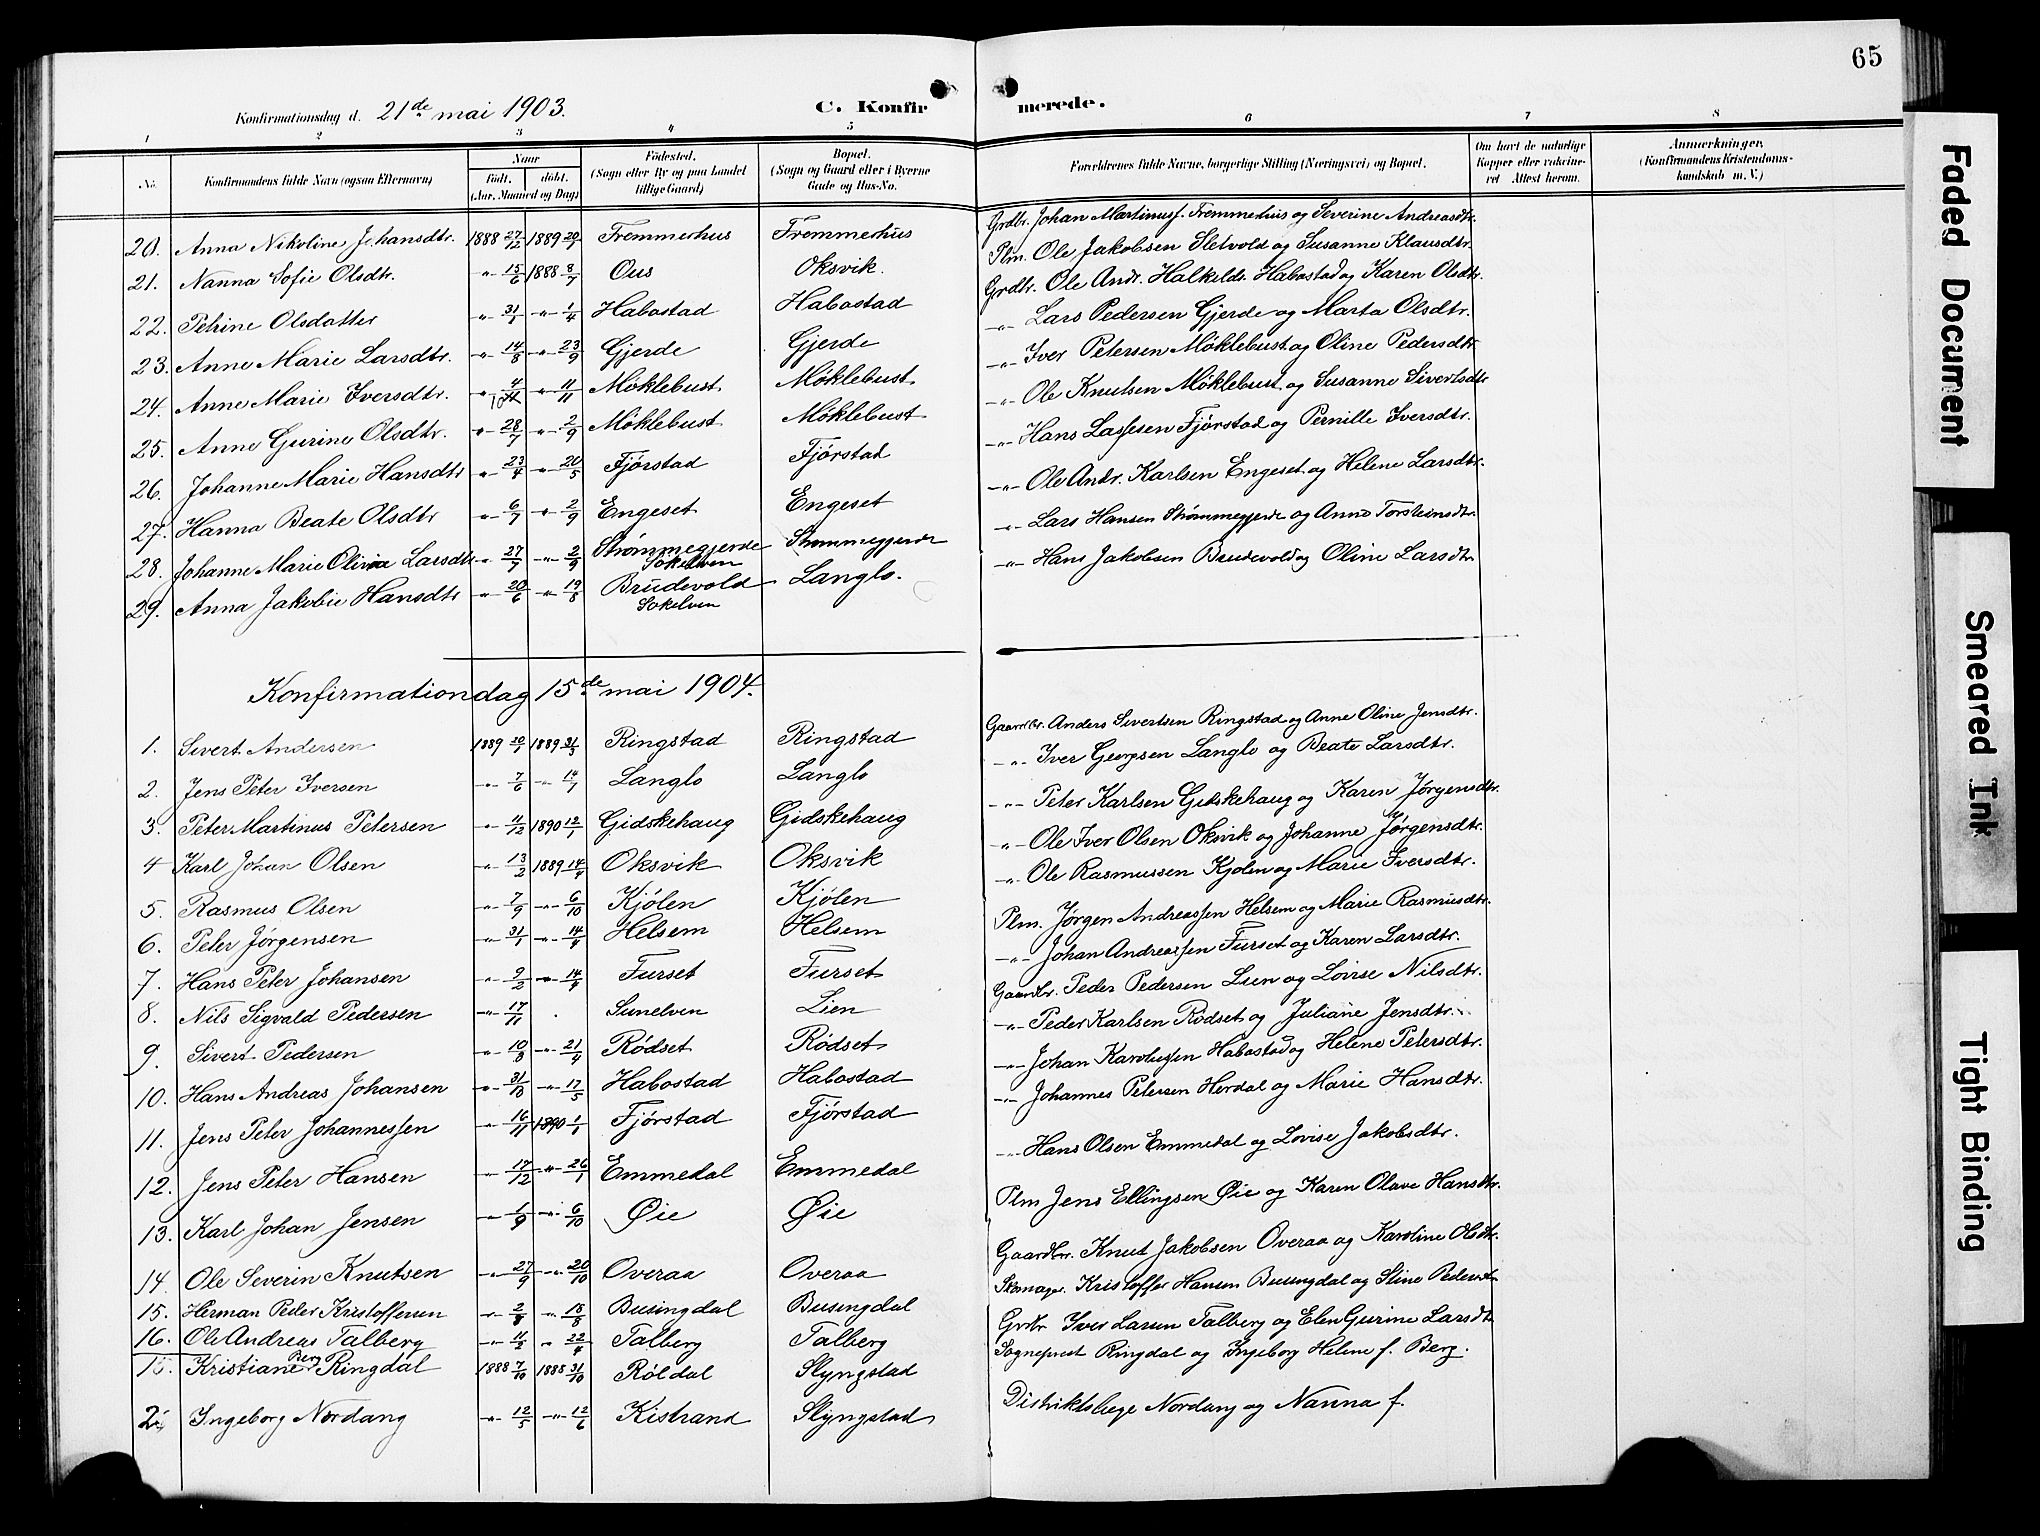 65
Konfirmationsdag d. 21de mai 1903.
C. Konfirmerede.
1 2 3 4 5 6 7 8
No.
Konfirmandens fulde Navn (ogsaa Efternavn)
Naar
født. døbt.
(Aar, Maaned og Dag)
Fødested.
(Sogn eller By og paa Landet
tillige Gaard)
Bopæl.
(Sogn og Gaard eller i Byerne
Gade og Hus-No.
Forældrenes fulde Navne, borgerlige Stilling (Næringsvei) og Bopæl.
Om havt de naturlige
Kopper eller vaccine-
ret Attest herom.
Anmerkninger,
(Konfirmandens Kristendoms-
kundskab m. V.)
20. Anna Nikoline Johansdtr. 1888 27/12 1889 20/1 Fremmerhus Fremmerhus Grdbr. Johan Martinusf. Fremmerhus og Severine Andreasdtr.
21. Nanna Sofie Olsdtr. -"- 15/6 1888 8/7 Ous Oksvik. Plm. Ole Jakobsen Sletvold og Susanne Klausdtr.
22. Petrine Olsdatter -"- 31/1 -"- 1/4 Habostad Habostad Grdbr. Ole Andr. Halkildr. Habostad og Karen Olsdtr.
23. Anne Marie Larsdtr. -"- 14/8 -"- 23/9 Gjerde Gjerde -"- Lars Pedersen Gjerde og Marta Olsdtr.
24. Anne Marie Iversdtr. -"- 4/10 -"- 11/11 Møklebust Møklebust -"- Iver Petersen Møklebust og Oline Pedersdtr
25. Anne Gurine Olsdtr. -"- 28/7 -"- 2/9 Møklebust Møklebust -"- Ole Knutsen Møklebust og Susanne Sivertsdtr
26. Johanne Marie Hansdtr -"- 23/4 -"- 20/5 Fjørstad Fjørstad -"- Hans Lassesen Fjørstad og Pernille Iversdtr.
27. Hanna Beate Olsdtr -"- 6/7 -"- 2/9 Engeset Engeset -"- Ole Andr. Karlsen Engeset og Helene Larsdtr.
28. Johanne Marie Olivia Larsdtr -"- 27/7 -"- 2/9 Strømmegjerde Søkelven Strømmegjerde -"- Lars Hansen Strømmegjerde og Anne Torsteinsdtr.
29. Anna Jakobie Hansdtr -"- 20/6 -"- 19/8 Brudevold Søkelven Langlo. -"- Hans Jakobsen Brudevold og Oline Larsdtr
Konfirmationdag 15de mai 1904.
1. Sivert Andersen 1889 20/1 1889 31/3 Ringstad Ringstad Gaardbr. Anders Sivertsen Ringstad og Anne Oline Jensdtr.
2. Jens Peter Iversen -"- 7/6 -"- 14/7 Langlo Langlo -"- Iver Georgsen Langlo og Beate Larsdtr.
3. Peter Martinus Petersen -"- 11/12 1890 12/1 Gidskehaug Gidskehaug -"- Peter Karlsen Gidskehaug og Karen Jørgensdtr.
4 Karl Johan Olsen -"- 13/2 1889 14/4 Oksvik Oksvik -"- Ole Iver Olsen Oksvik og Johanne Jørgensdtr.
5. Rasmus Olsen -"- 7/9 -"- 6/10 Kjølen Kjølen -"- Ole Rasmussen Kjølen og Marie Iversdtr.
6. Peter Jørgensen -"- 31/1 -"- 14/4 Helsem Helsem Plm. Jørgen Andreassen Helsem og Marie Rasmusdtr.
7. Hans Peter Johansen -"- 9/2 -"- 14/4 Furset Furset -"- Johan Andreassen Furset og Karen Larsdtr.
8. Nils Sigvald Pedersen -"- 17/11 . Sunelven Lien Gaardbr. Peder Pedersen Lien og Lovise Nilsdtr.
9. Sivert Pedersen -"- 10/3 -"- 21/4 Rødset Rødset -"- Peder Karlsen Rødset og Juliane Jensdtr.
10. Hans Andreas Johansen -"- 31/3 -"- 17/5 Habostad Habostad -"- Johan Karolussen Habostad og Helene Petersdtr.
11. Jens Peter Johannessen -"- 16/11 1890 1/1 Fjørstad Fjørstad -"- Johannes Petersen Herdal og Marie Hansdtr.
12. Jens Peter Hansen -"- 17/12 -"- 26/1 Emmedal Emmedal -"- Hans Olsen Emmedal og Lovise Jakobsdtr.
13. Karl Johan Jensen -"- 1/9 -"- 6/10 Øie Øie Plm Jens Ellingsen Øie og Karen Olave Hansdtr.
14 Ole Severin Knutsen -"- 27/9 -"- 20/10 Overaa Overaa Gaardbr. Knut Jakobsen Overaa og Karoline Olsdtr.
15. Herman Peder Kristoffersen -"- -"- Busingdal Busingdal Skomager. Kristoffer Hansen Busingdal og Stine Pedersdtr
16. Ole Andreas Talberg -"- 11/2 " 22/4 Talberg Talberg Grdbr Iver Larsen Talberg og Elen Gurine Larsdtr
Kristiane Berg Ringdal 1888 7/10 1888 31/10 Røldal Slyngstad Sogneprest Ringdal og Ingeborg Helene f. Berg.
2. Ingeborg Nordang -"- 12/5 -"- 12/6 Kistrand Slyngstad Distriktslæge Nordang og Nanna f.
Faded Document
Smeared Ink
Tight Binding